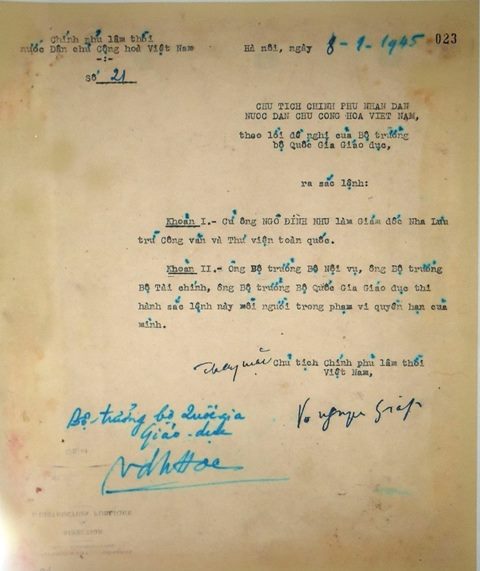 Chính phủ lâm thời
nước Dân chủ Cộng hoà Việt Nam
-:-
Số 21
Hà nội, ngày 8-9-1945
023
CHU TICH CHINH PHU NHAN DAN
NUOC DAN CHU CONG HOA VIET NAM,
theo lời đề nghị của Bộ trưởng
bộ Quốc Gia Giáo dục,
ra sắc lệnh:
Khoản I.- Cử ông NGÔ ĐÌNH NHU làm Giám đốc Nha Lưu
trữ Công văn và Thư viện toàn quốc.
Khoản II.- Ông Bộ trưởng Bộ Nội vụ, ông Bộ trưởng
Bộ Tài chính, ông Bộ trưởng Bộ Quốc Gia Giáo dục thi
hành sắc lệnh này mỗi người trong phạm vi quyền hạn của
mình.
Thay mặt Chủ tịch Chính phủ lâm thời
Việt Nam,
Bộ trưởng bộ Quốc gia
Giáo-dục
Võ nguyên Giáp
VĐHHoe